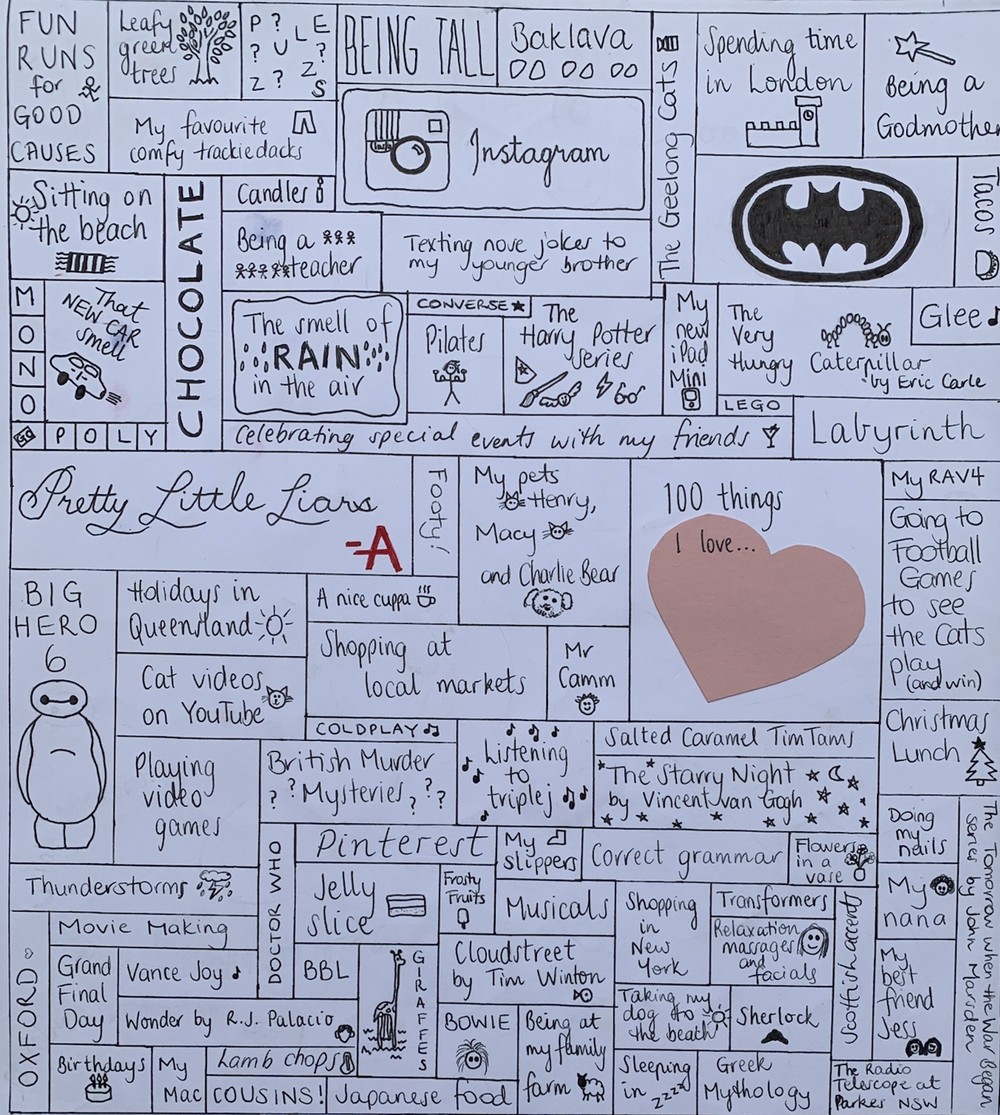 FUN
RUNS
for
GOOD
CAUSES
Leafy
green
trees
P ? L E
? U ?
Z ? Z
S
BEING TALL
Baklava
The Geelong Cats
Spending time
in London
Being a
Godmother
My favourite
comfy trackiedacks
Instagram
Insta
Sitting on
the beach
CHOCOLATE
Candles
Being a
teacher
Texting nove jokes to
my younger brother
Tacos
MONO
GO
POLY
That
NEW CAR
smell
The smell of
RAIN
in the air
CONVERSE
Pilates
The
Harry Potter
series
My
new
iPad
Mini
The
Very
Hungry Caterpillar
by Eric Carle
Glee
LEGO
Celebrating special events with my friends
Labyrinth
Pretty Little Liars
-A
Footy!
My pets
Henry,
Macy
and Charlie Bear
100 things
I love...
My RAV4
Going to
Football
Games
to see
the Cats
play
(and win)
BIG
HERO
6
Holidays in
Queensland
A nice cuppa
Shopping at
local markets
Mr
Camm
Cat videos
on YouTube
COLDPLAY
Christmas
Lunch
Playing
video
games
British Murder
? ? Mysteries ? ? ?
Listening
to
triplej
Salted Caramel TimTams
The Starry Night
by Vincent van Gogh
Doing
my
nails
The Tomorrow when the War Began
series by John Marsden
Thunderstorms
DOCTOR WHO
Pinterest
My
slippers
Correct grammar
Flowers
in a
vase
Jelly
slice
Frosty
Fruits
Musicals
Shopping
in
New
York
Transformers
Relaxation
massages
and
facials
Scottish accents
My
nana
OXFORD
Movie Making
Grand
Final
Day
Vance Joy
BBL
GIRAFFES
Cloudstreet
by Tim Winton
My
best
friend
Jess
Wonder by R.J. Palacio
BOWIE
Being at
my family
farm
Taking my
dog to
the beach
Sherlock
Birthdays
My
Mac
Lamb chops
COUSINS!
Japanese food
Sleeping
in zzzz
Greek
Mythology
The Radio
Telescope at
Parkes NSW